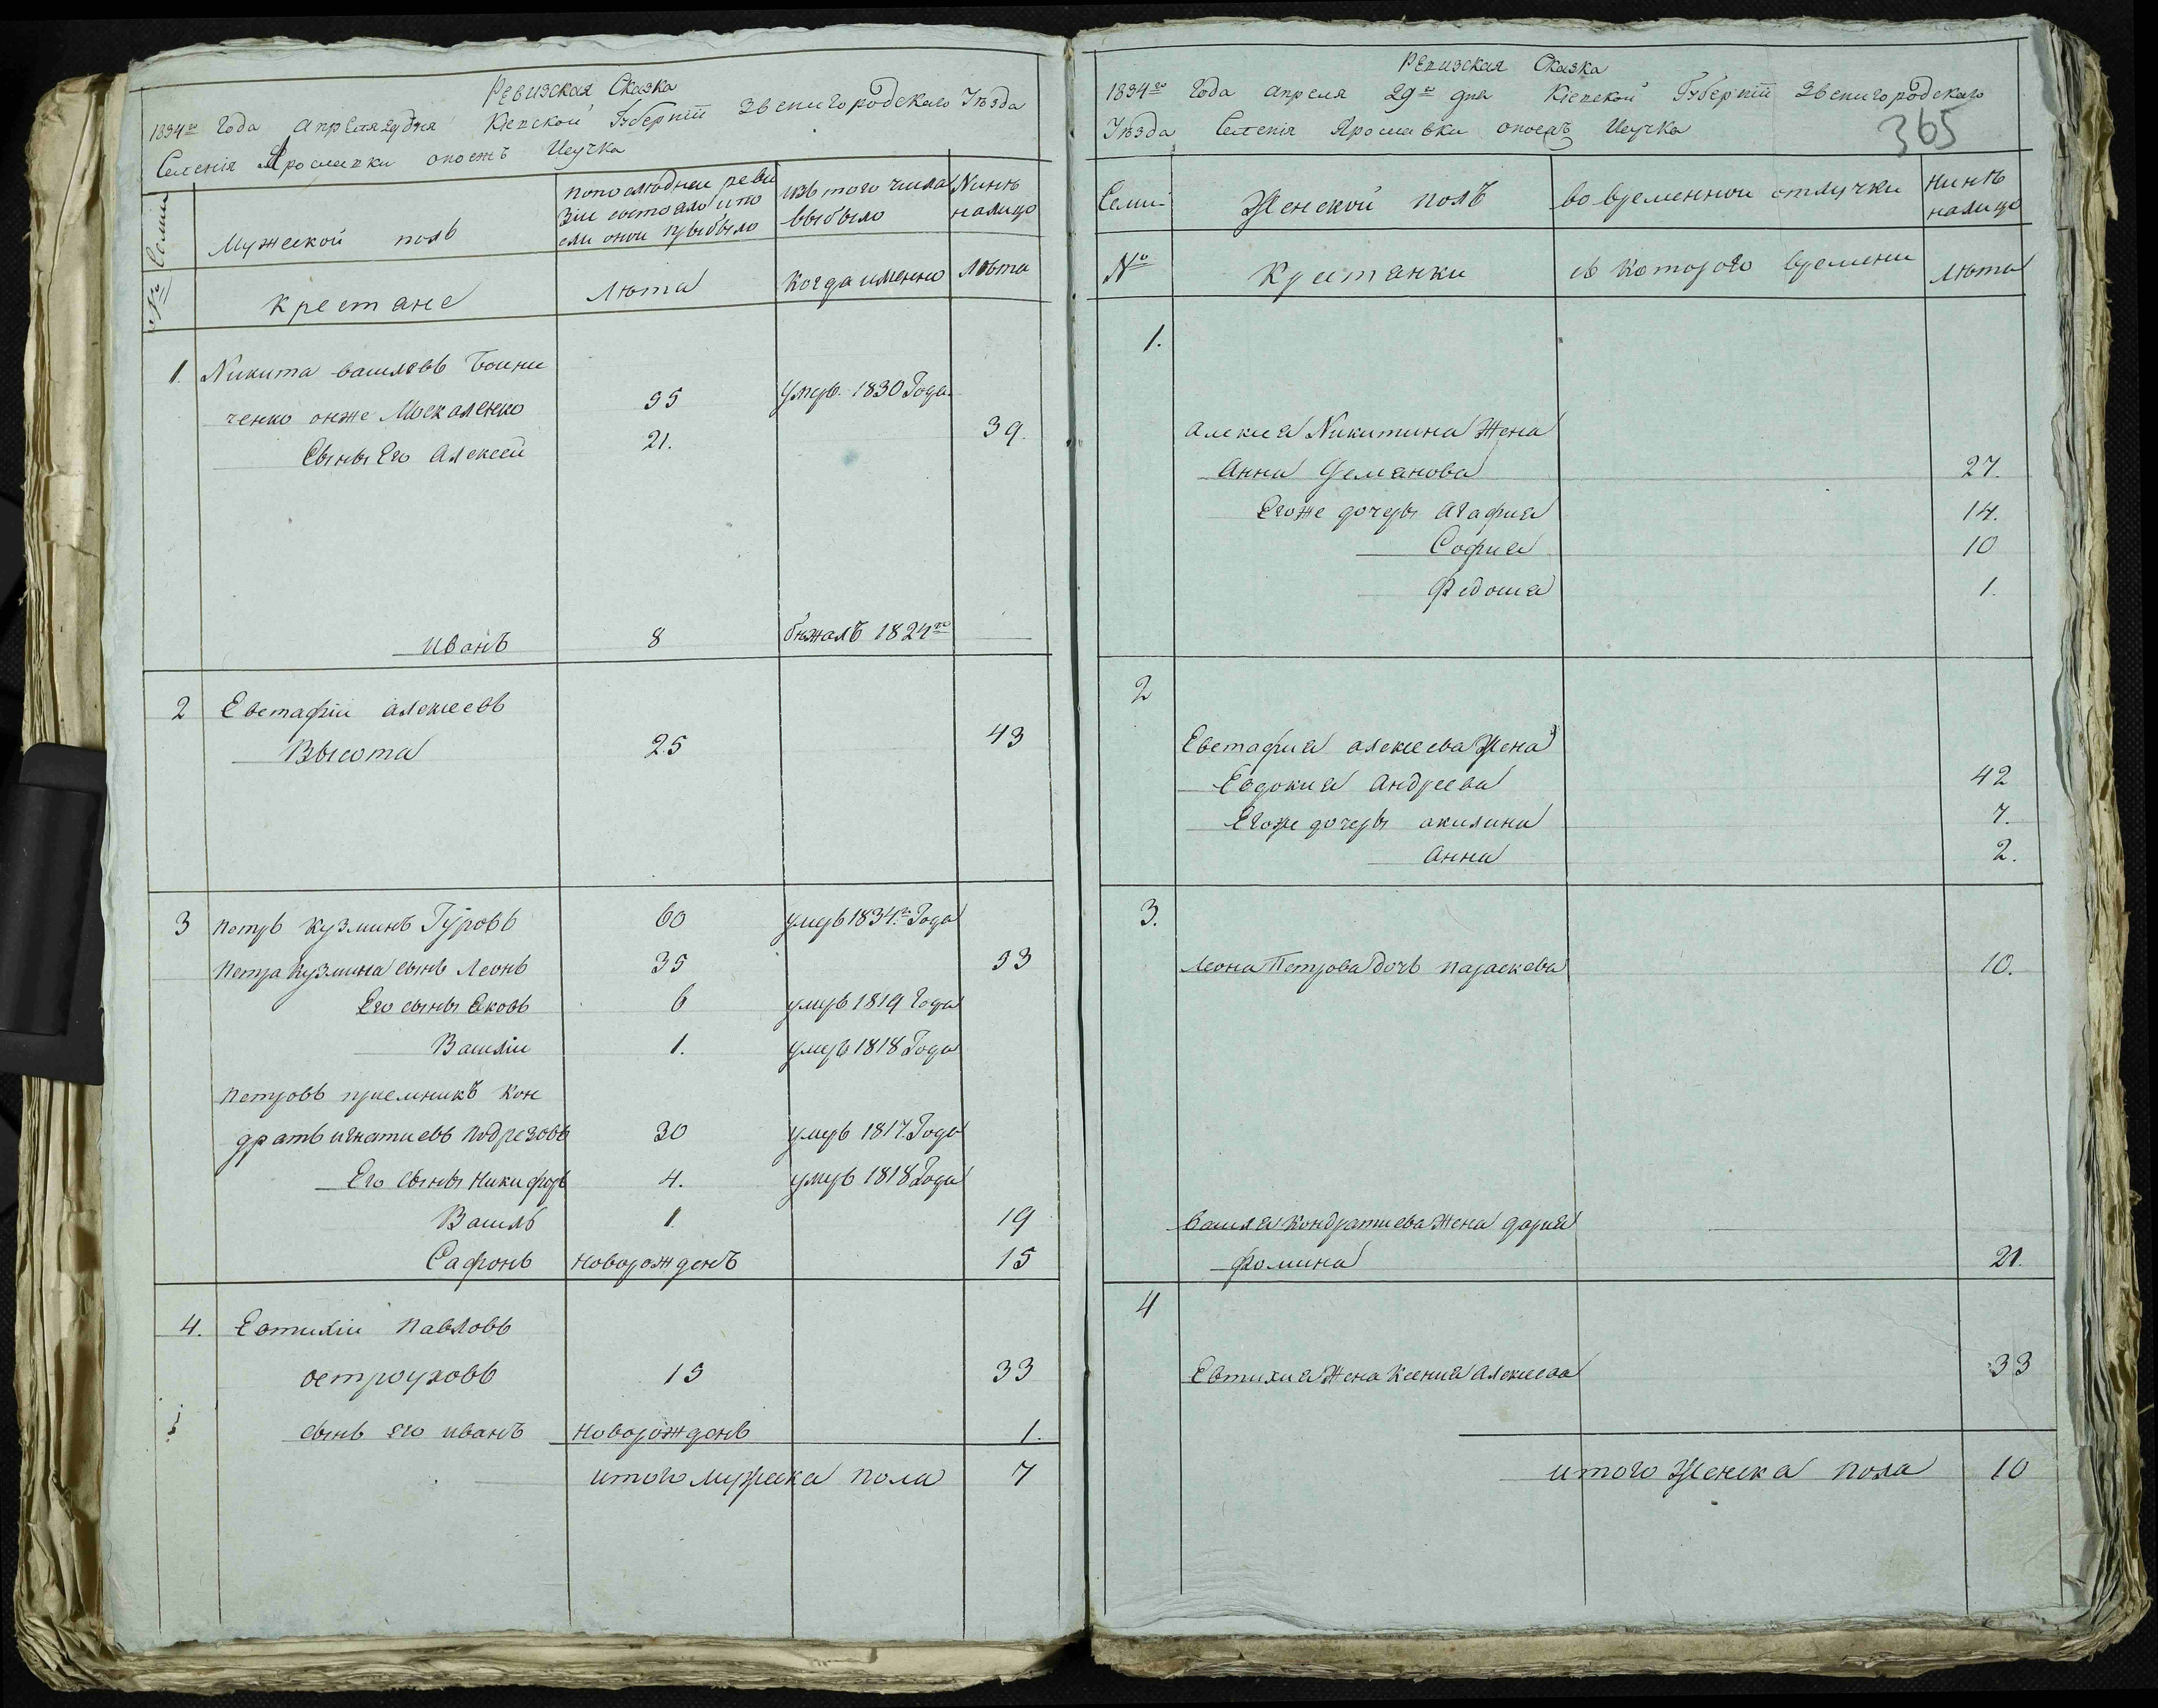 Ревизская Сказка
1834го Года апреля 29 дня Кіевской Губерніи Звенигородскаго Уѣзда
Селенія Ярославки
№ Семьи
Мужеской полъ
По последней реви
зіи состояло и по
сли оной прибыло
Изъ того числа
выбыло
Нынѣ
налицо
крестяне
Лѣта
Когда именно
Лѣта
1. Никита васильевъ Боини
ченко онже Москаленко 55 Умеръ 1830 Года
Сыны Его Алексей 21. 39.
Иванъ 8 бѣжалъ 1824го
2 Евстафіи алексеевъ
Высота 25 43
3 Петръ Кузминъ Гуровъ 60 умеръ 1834го Года
Петра Кузмина сынъ Леонъ 35 53
Его сыны Яковъ 6 умеръ 1819 Года
Василіи 1. умеръ 1818 Года
Петровъ приемникъ Кон
дратъ игнатиевъ Подрезовъ 30 умеръ 1817 Года
Его Сыны Никифоръ 4. умеръ 1818 Года
Василь 1. 19
Сафонъ новорожденъ 15
4. Евтихіи Павловъ
остроуховъ 15 33
сынъ его иванъ новорожденъ 1.
итого мужеска пола 7
Ревизская Сказка
1834го Года апреля 29го дня Кіевской Губерніи Звенигородскаго
Уѣзда Селенія Ярославки
365
Семи
Женской полъ
во временной отлучки
Нинѣ
налицо
№
Крестянки
съ Которого времени
лѣта
1.
алексея Никитина Жена
Анна Демянова 27.
Егоже дочеры Агафия 14.
София 10
Федосия 1.
2
Евстафия алексеева Жена
Евдокия Андреева 42
Егоже дочеры акилина 7.
Анна 2.
3.
Леона Петрова дочь параскева 10.
Василя Кондратиева Жена дария
Фомина 21.
4
Евтихия Жена Ксения Алексеева 33
итого Женска пола 10